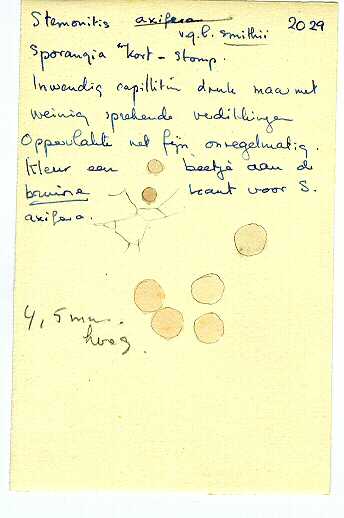 Stemonitis axifera 2029
v.g.l. smithii
Sporangia "kort - stomp.
Inwendig capillitium druk maar met
weinig sprekende verdikkingen
Oppervlakte net fijn onregelmatig.
Kleur een beetje aan de
bruine kant voor S.
axifera.
4,5 mm.
hoog.